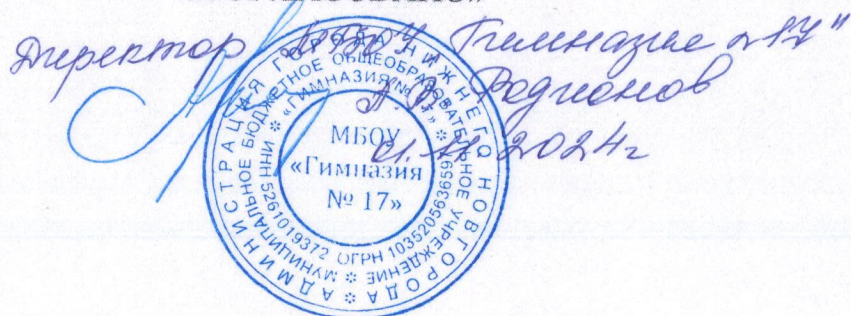 Директор МБОУ "Гимназия №17"
Родионов
11.2024г
АДМИНИСТРАЦИЯ ГОРОДА НИЖНЕГО НОВГОРОДА
МУНИЦИПАЛЬНОЕ БЮДЖЕТНОЕ ОБЩЕОБРАЗОВАТЕЛЬНОЕ УЧРЕЖДЕНИЕ
«ГИМНАЗИЯ № 17»
ИНН 5261019372 ОГРН
МБОУ
«Гимназия
№ 17»